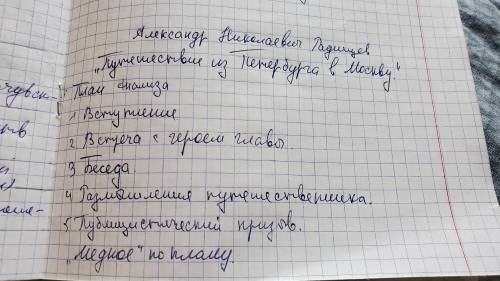 Александр Николаевич Радищев
„Путешествие из Петербурга в Москву."
План анализа
1 Вступление
2 Встреча с героем главы
3 Беседа.
4 Размышления путешественника.
5 Публицистический призыв.
„Медное" по плану.